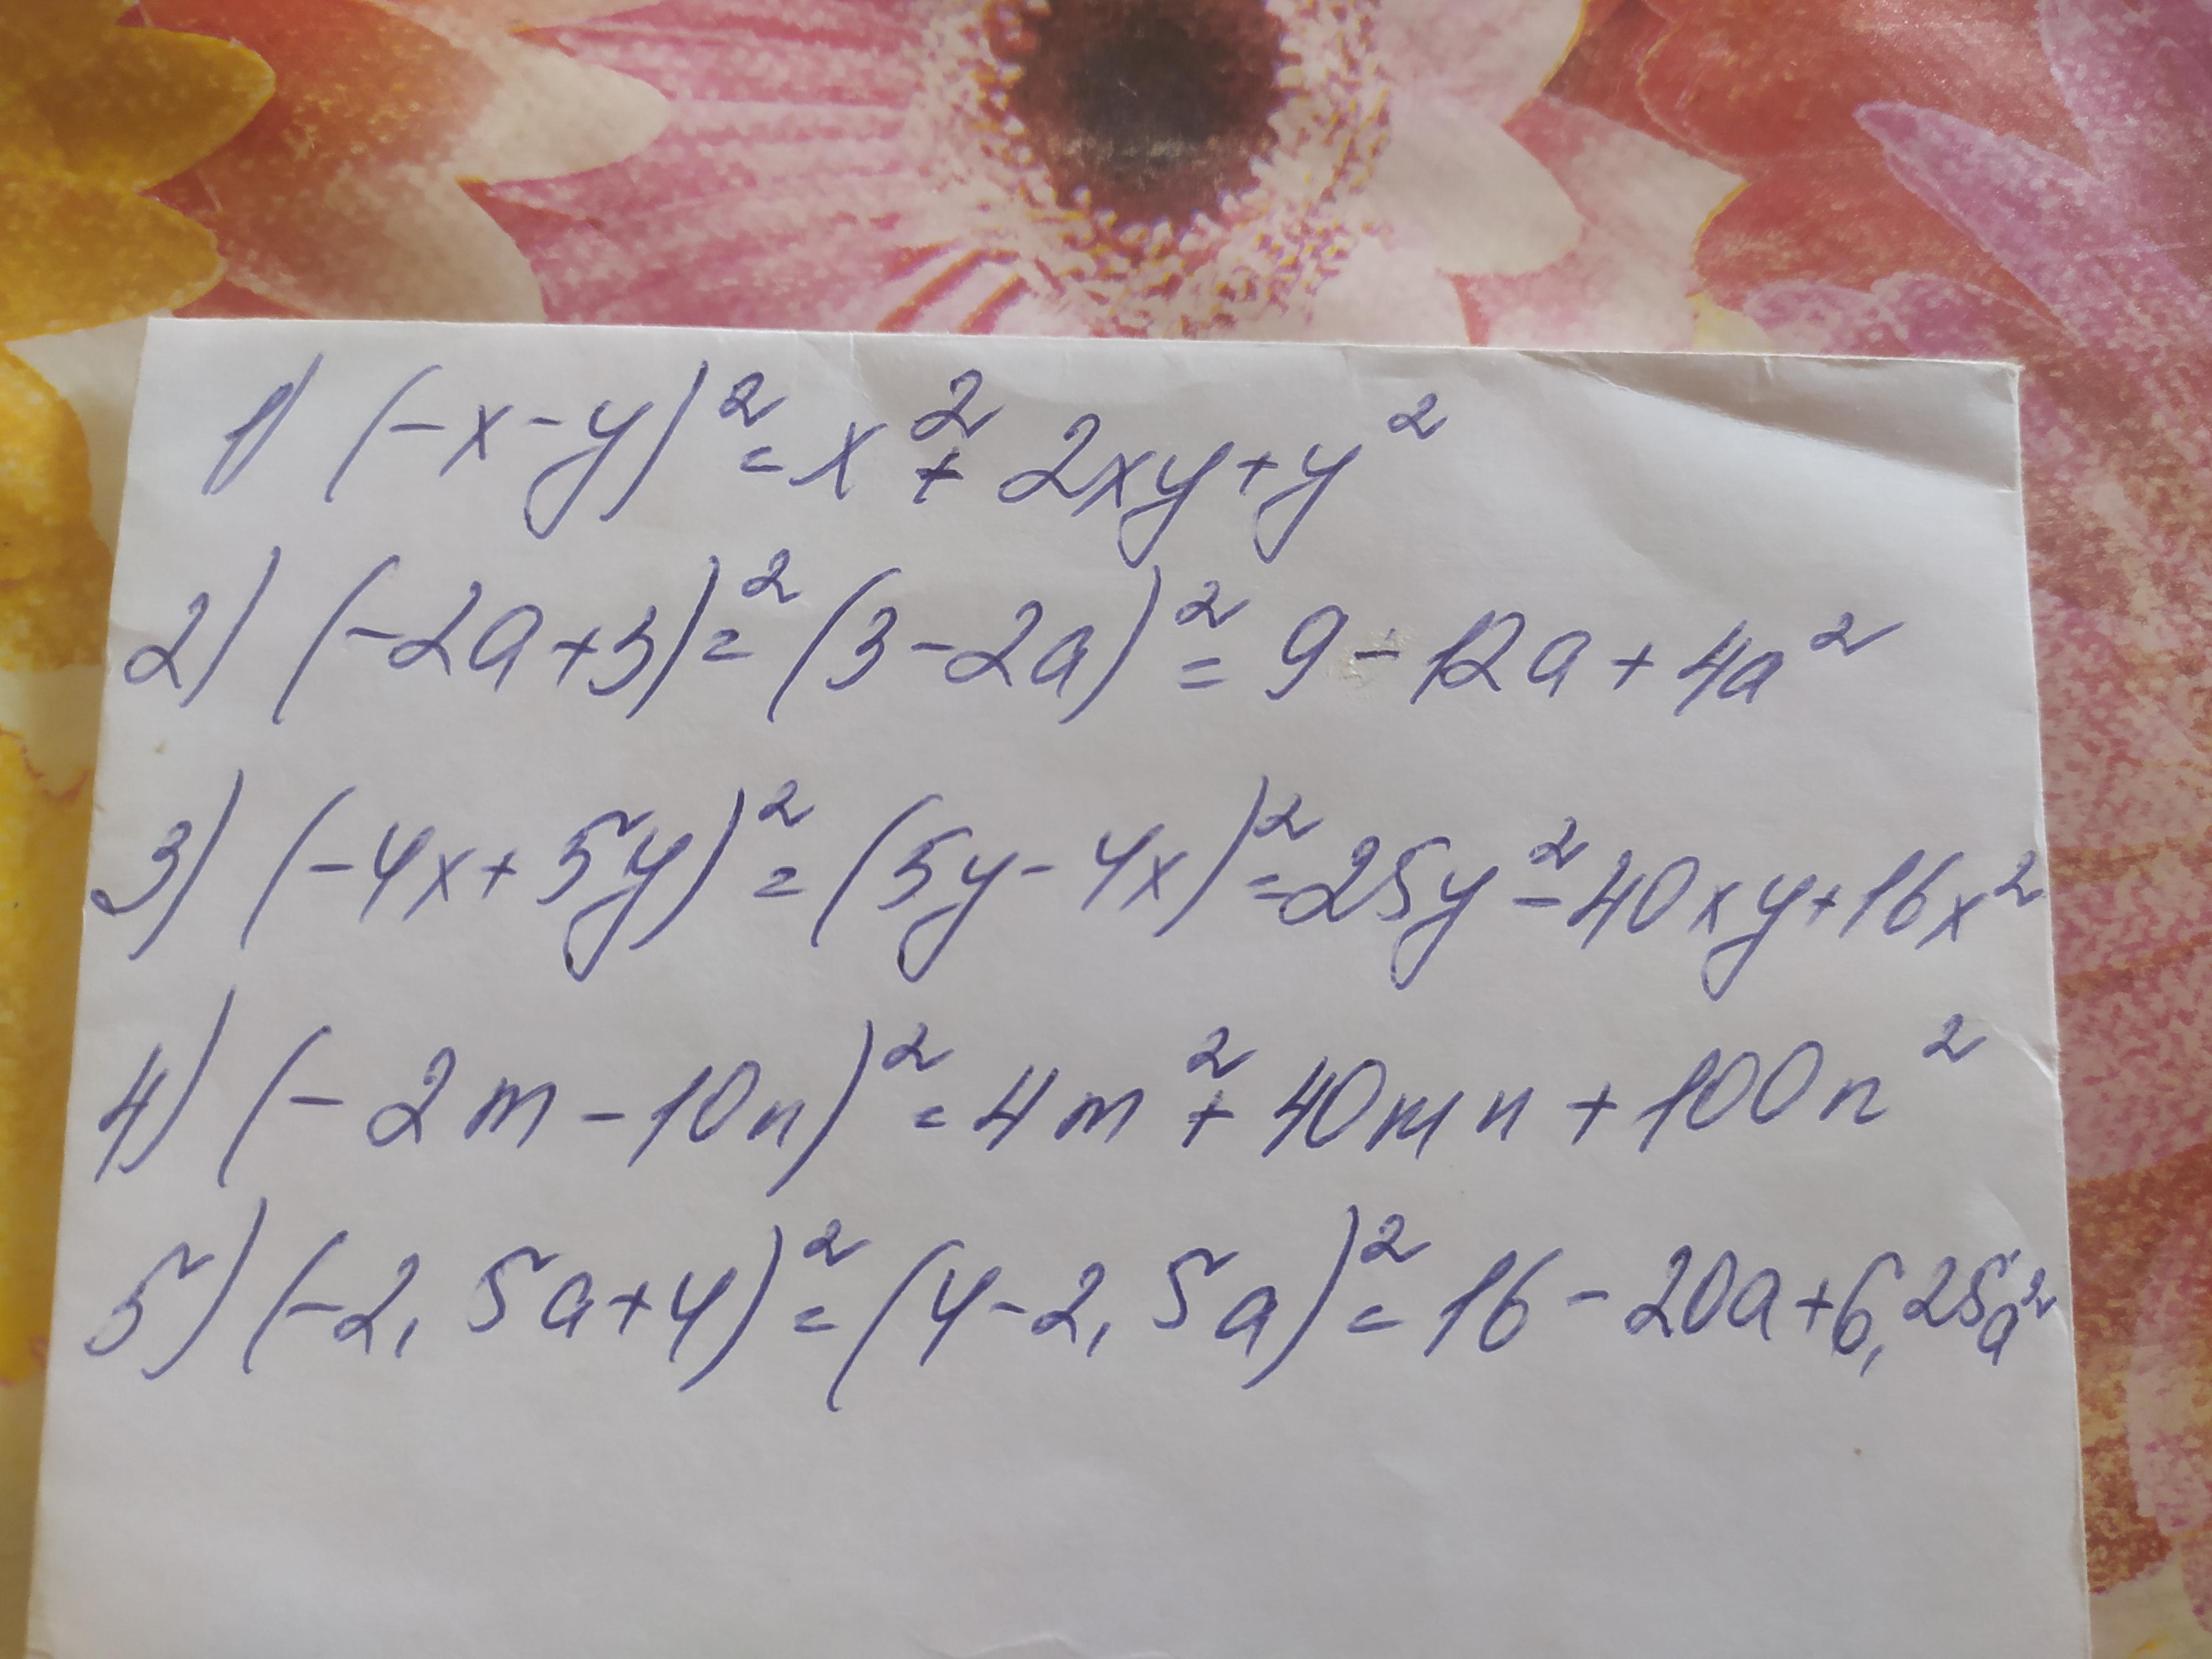 1) (-x-y)² = x² + 2xy + y²
2) (-2a+3)² = (3-2a)² = 9 - 12a + 4a²
3) (-4x+5y)² = (5y-4x)² = 25y² - 40xy + 16x²
4) (-2m-10n)² = 4m² + 40mn + 100n²
5) (-2,5a+4)² = (4-2,5a)² = 16 - 20a + 6,25a²